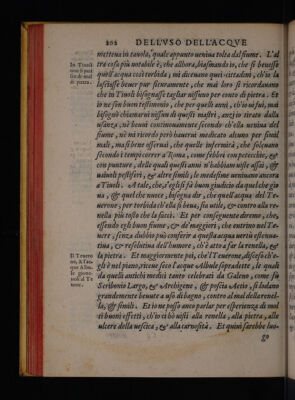 202 DELL'VSO DELL'ACQVE
metteua in tauola, quale appunto ueniua tolta dal fiume. L'al
tra cosa più notabile è, che allhora, biasmando io, che si beuesse
quell'acqua così torbida, mi diceuano quei cittadini, ch'io la
lasciasse beuer pur sicuramente, che mai loro si ricordauano
che in Tiuoli bisognasse tagliar nissuno per conto di pietra. Et
io ne son buon testimonio, che per quelli anni, ch'io ui fui, mai
bisognò chiamarui nissun di questi mastri, anzi io tirato dalla
usanza, nè beuui continouamente, secondo ch'essi, l'acqua del
fiume, nè mi ricordo però hauerui medicato alcuno per simil
mali, ma sì bene osseruai, che quelle infermità, che soleuano
secondo i tempi correr a Roma, come febbri con petecchie, &
con punture, delle quali questi anni n'habbiamo uiste assai, &
uaiuoli pestiferi, & altre simili, le medesime ueniuano ancora
a Tiuoli. A tale, che, s'egli si fà buon giudicio da quel che gio
ua, & quel che nuoce, bisogna dir, che quell'acqua del Te-
uerone, per torbida ch'ella si beua, sia utile, & contro alla re-
nella più tosto che la facci. Et per conseguente diremo, che,
essendo egli buon fiume, & de' maggiori, che entrino nel Te-
uere, senza dubbio può conferire a quella acqua uertù essenua-
tiua, & resolutiua dell'humore, ch'è atto a far la renella, &
la pietra. Et maggiormente poi, che'l Teuerone, disceso ch'e-
gli è nel piano, riceue seco l'acque Albule sopradette, le quali
da quelli antichi medici tanto celebrati da Galeno, come fù
Scribonio Largo, & Archigene, & poscia Aetio, si lodano
grandemente beuute a uso di bagno, contro al mal della renel-
la, & simili. Et io ne posso anco parlar per esperienza di mol
ti buoni effetti, ch'io ci hò uisti alla renella, alla pietra, alle
ulcere della uescica, & alla carnosità. Et quini sarebbe luo-
go
In Tiuoli
non si pati
sce di mal
di pietra.
Il Teuero
ne, & l'ac-
que Albu-
le giouano
al Te
uere.